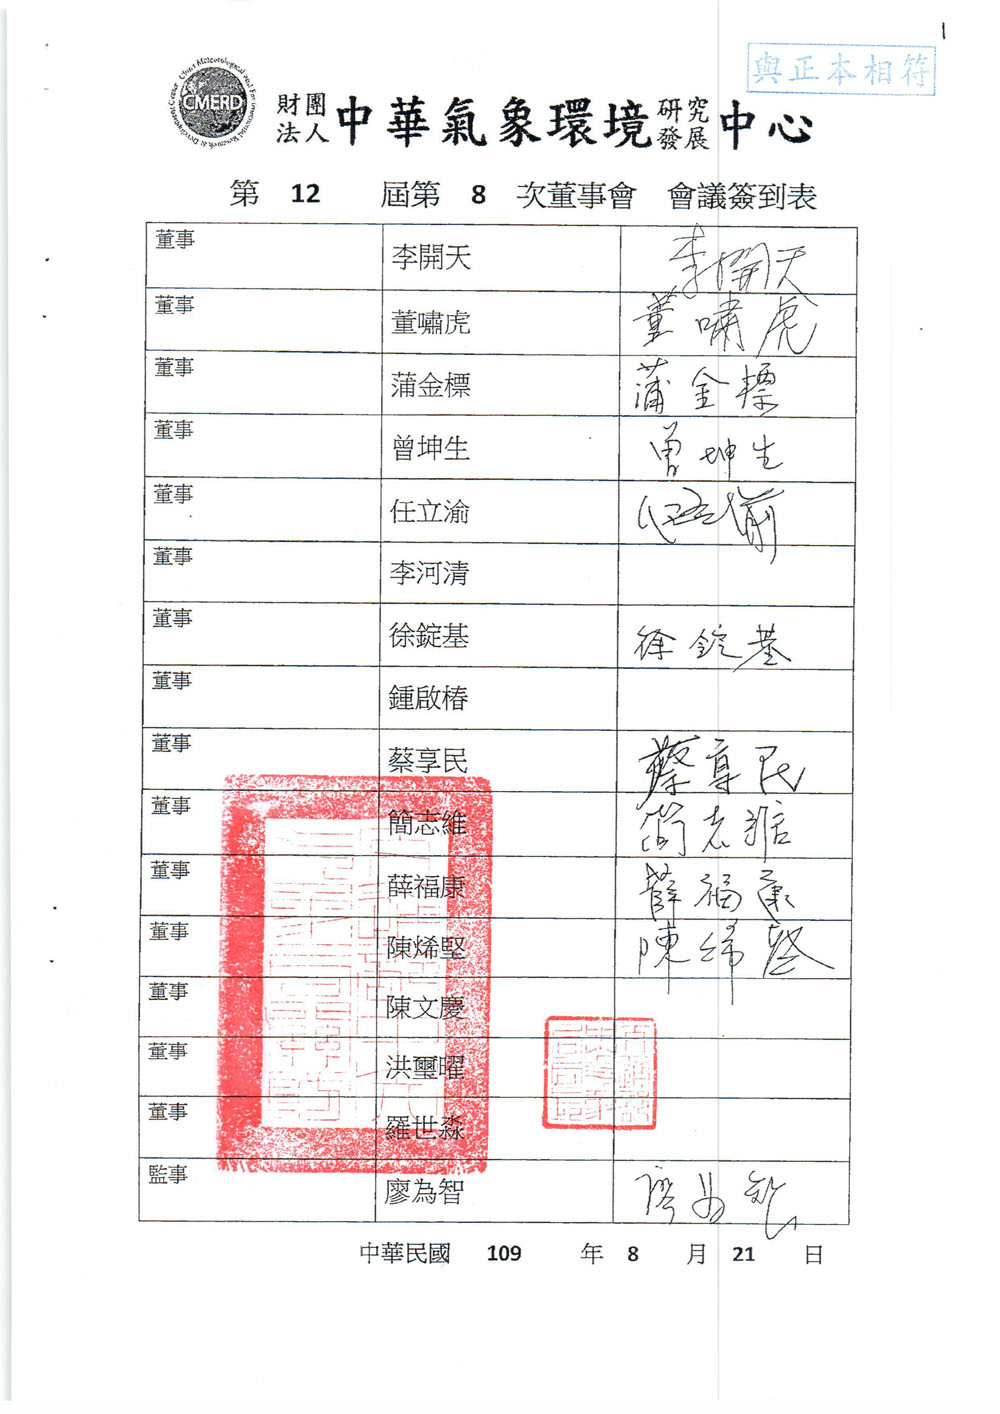 與正本相符
CMERD
財團法人中華氣象環境研究發展中心
第 12 屆第 8 次董事會 會議簽到表
董事 李開天 李開天
董事 董嘯虎 董嘯虎
董事 蒲金標 蒲金標
董事 曾坤生 曾坤生
董事 任立渝 任立渝
董事 李河清
董事 徐錠基 徐錠基
董事 鍾啟椿
董事 蔡享民 蔡享民
董事 簡志維 簡志維
董事 薛福康 薛福康
董事 陳烯堅
董事 陳文慶
董事 洪璽曜
董事 羅世淼
監事 廖為智 廖為智
中華民國 109 年 8 月 21 日